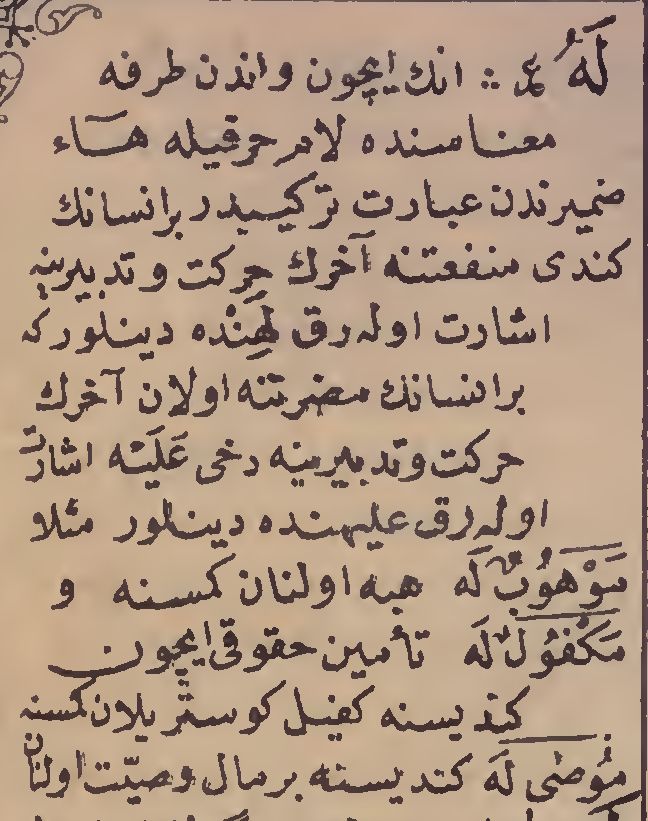 لَهُ ع :: انك ايچون واندن طرفه
معناسنده لام حرفيله هـاء
ضميرندن عبارت تركيبدر بر انسانك
كندى منفعتنه آخرك حركت وتدبيرينه
اشارت اوله رق لَهِنْده دينلور كه
بر انسانك مضرتنه اولان آخرك
حركت وتدبيرينه دخى عَلَيْه اشارت
اوله رق عليهنده دينلور مثلا
مَوْهُوبٌ لَه هبه اولنان كمسنه و
مَكْفُولٌ لَه تأمين حقوقى ايچون
كنديسنه كفيل كوستريلان كمسنه
مُوصٰى لَه كنديسنه بر مال وصيّت اولنان